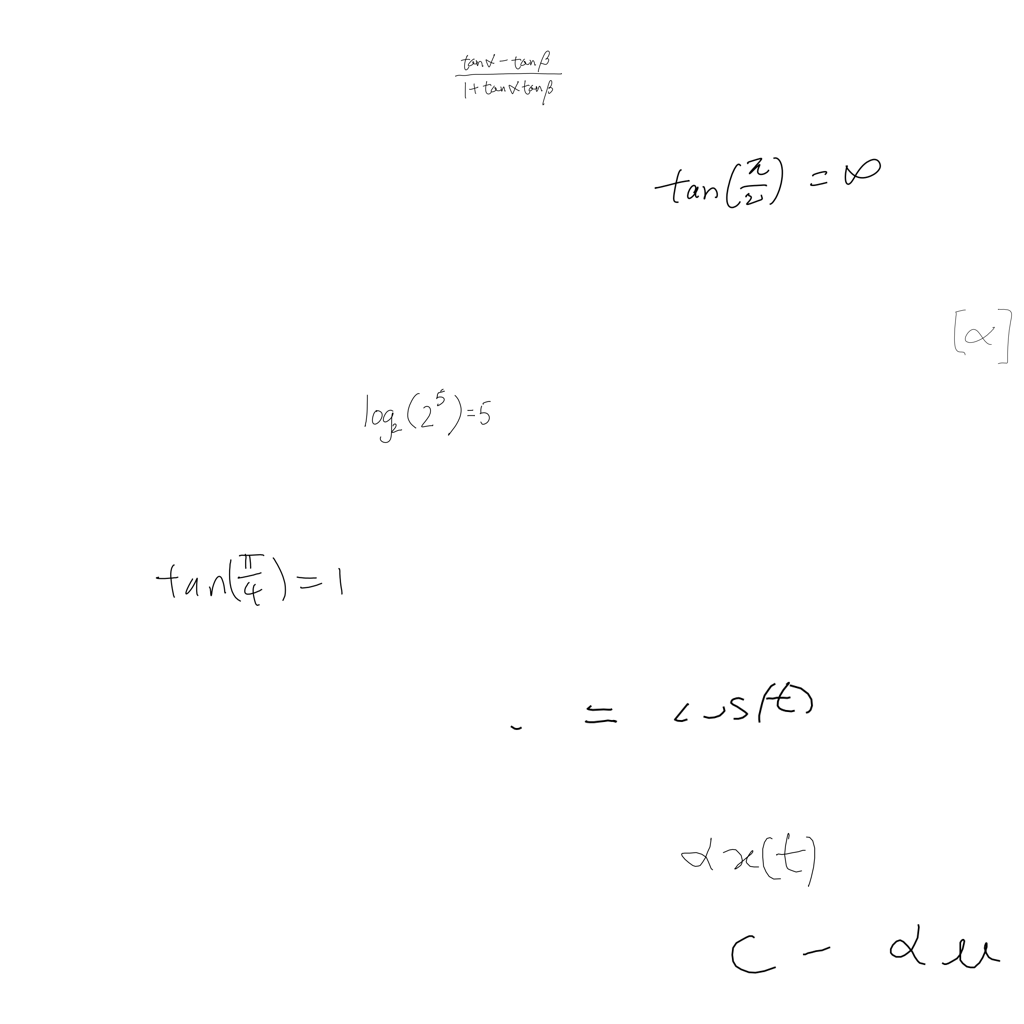 \frac{tanα - tanβ}{1 + tanα tanβ}
tan(\frac{π}{2}) = ∞
[α]
log₂(2⁵)=5
tan(\frac{π}{4}) = 1
. = cos(t)
αx(t)
C - αu